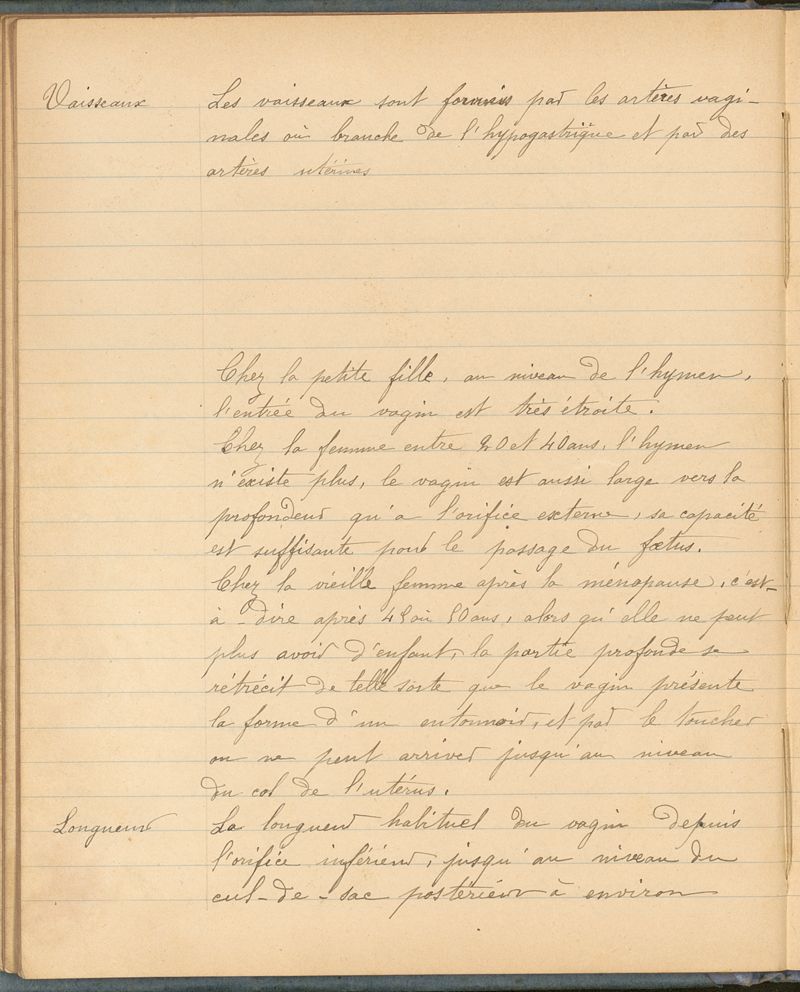 Vaisseaux
Les vaisseaux sont formés par les artères vagi-
nales où branche de l'hypogastrique et par des
artères utérines
Chez la petite fille, au niveau de l'hymen,
l'entrée du vagin est très étroite.
Chez la femme entre 20 et 40 ans, l'hymen
n'existe plus, le vagin est aussi large vers la
profondeur qu'a l'orifice externe, sa capacité
est suffisante pour le passage du fœtus.
Chez la vieille femme après la ménopause, c'est-
à-dire après 45 où 50 ans, alors qu'elle ne peut
plus avoir d'enfant, la partie profonde se
rétrécit de telle sorte que le vagin présente
la forme d'un entonnoir, et par le toucher
on ne peut arriver jusqu'au niveau
du col de l'utérus.
Longueur
La longueur habituel du vagin depuis
l'orifice inférieur, jusqu'au niveau du
cul-de-sac postérieur à environ